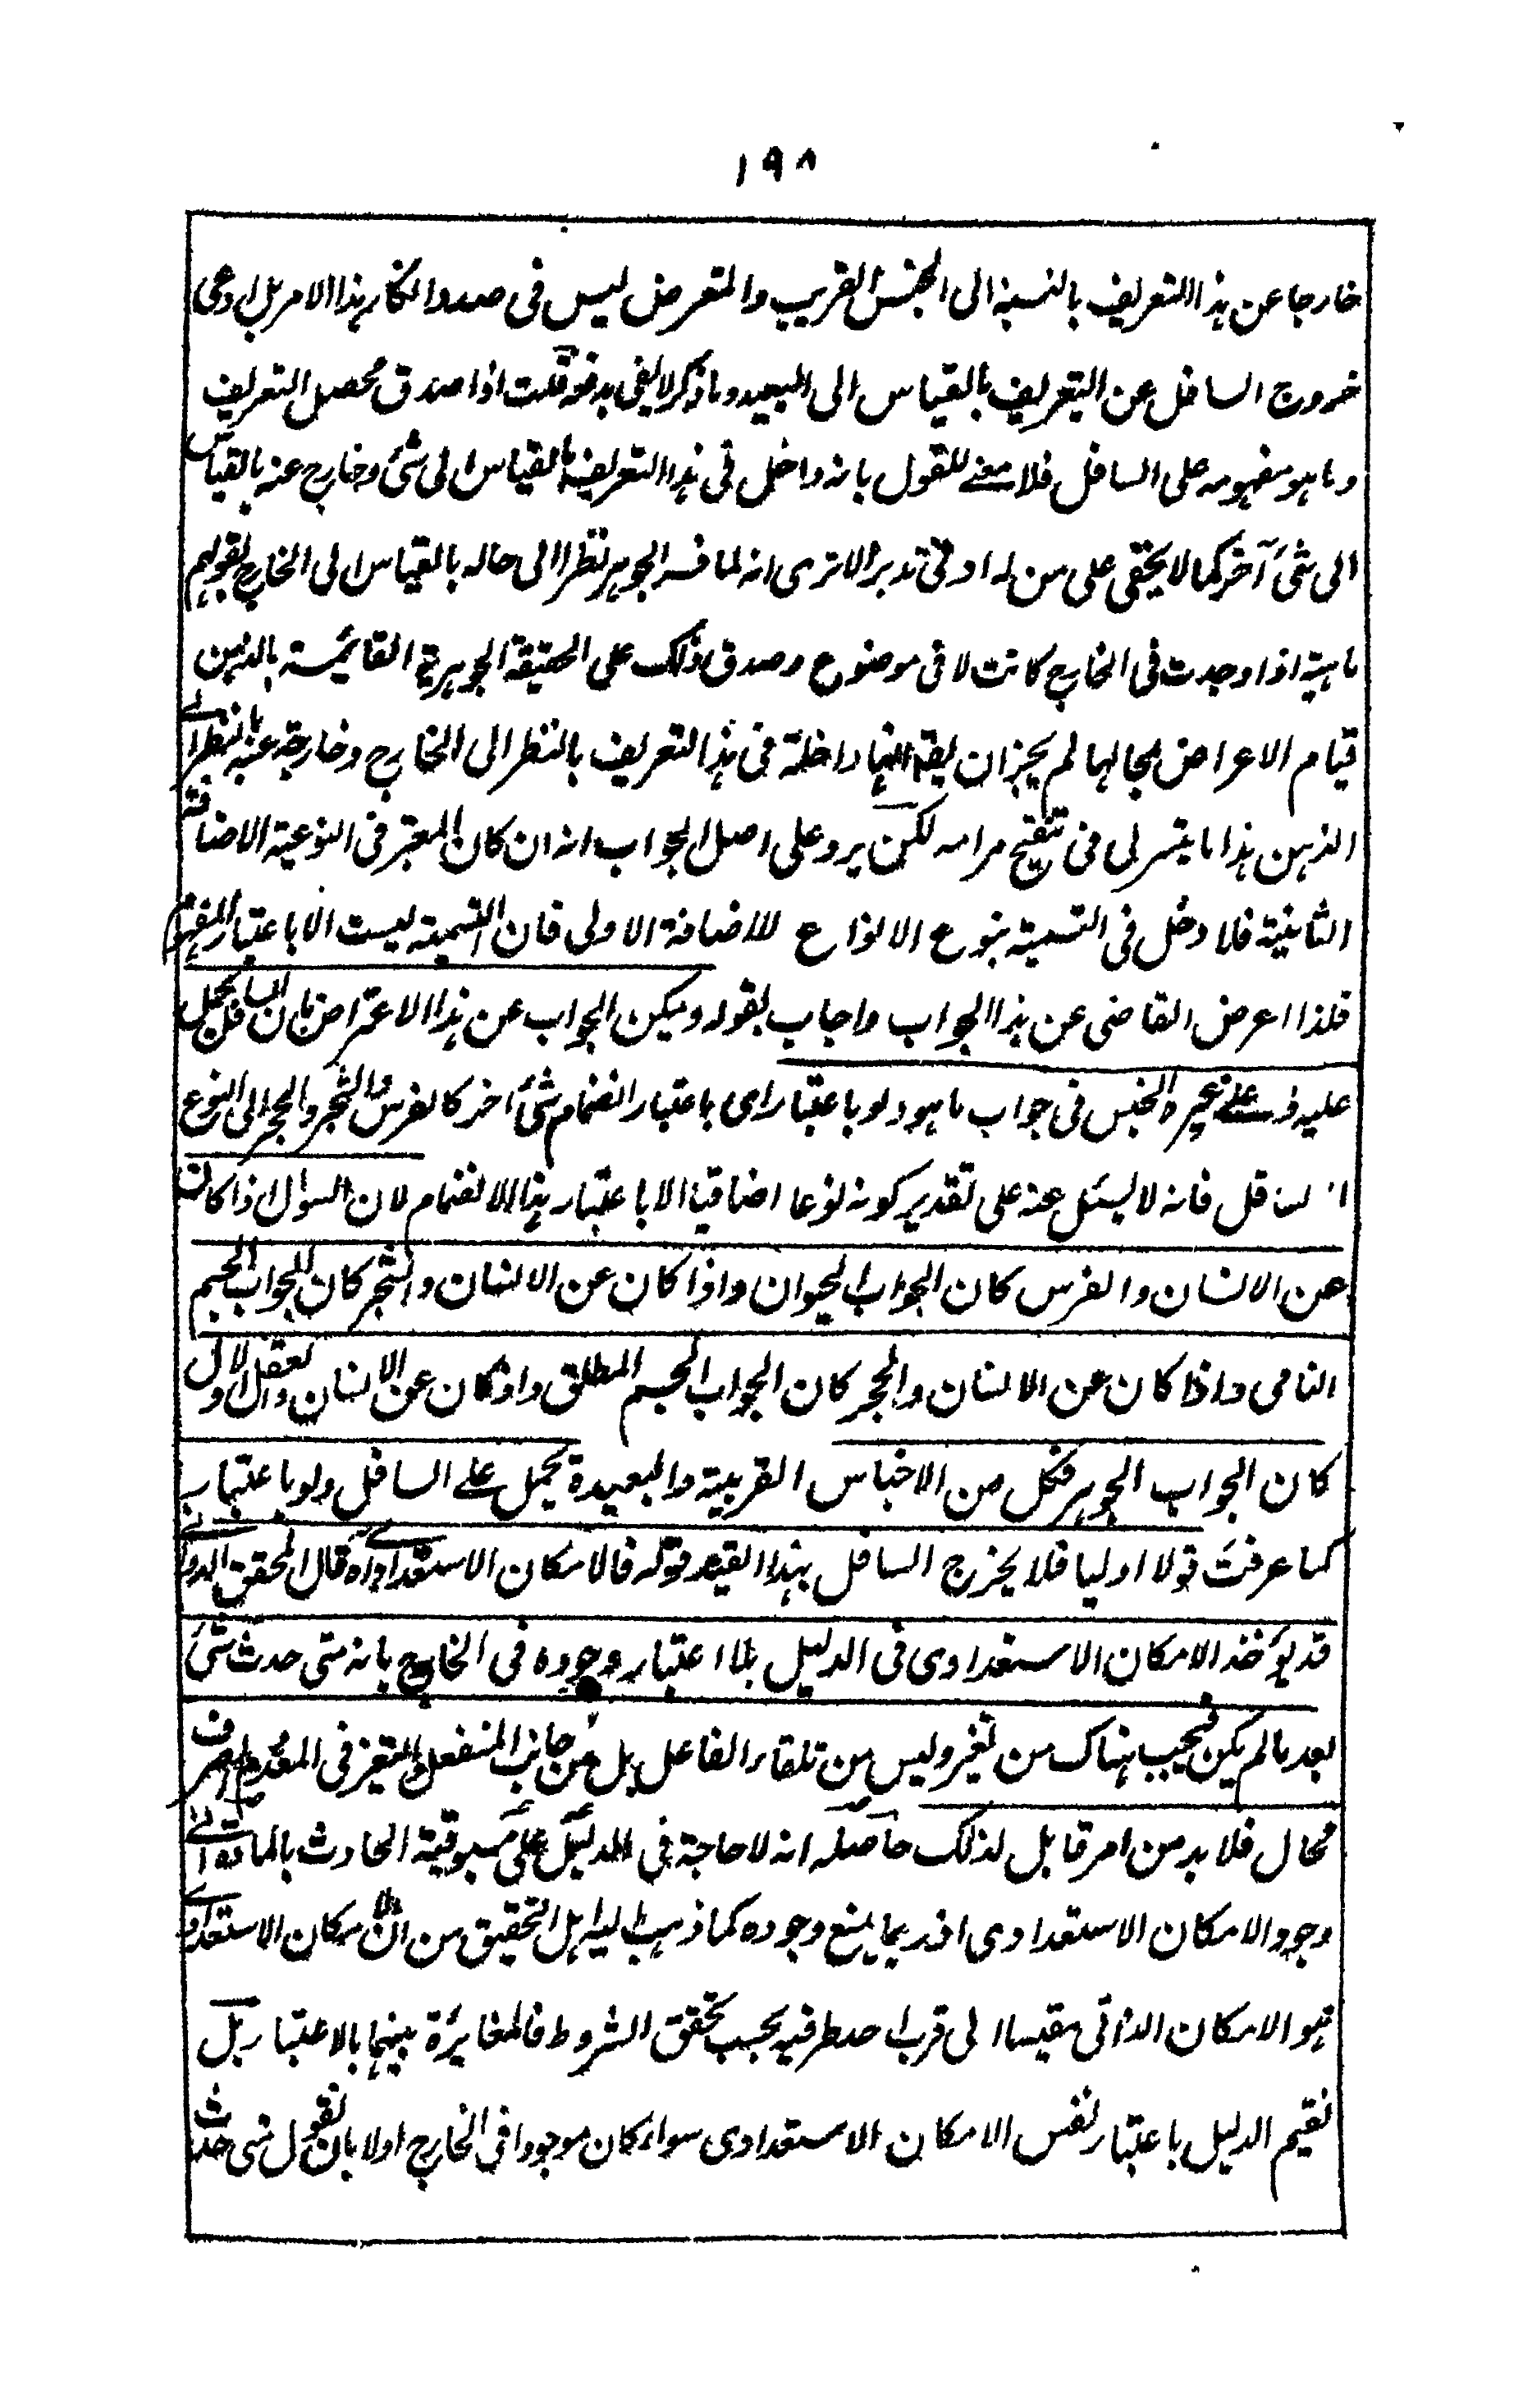 ١٩٨
خارجا عن هذا التعريف بالنسبة الى الجنس القريب والمتعرض ليس فى صدد انكار هذا الامر بل ادعى
خروج السافل عن التعريف بالقياس الى البعيد وما ذكر لا يفى بدفعه قلت اذا صدق محصل التعريف
وما هو مفهومه على السافل فلا معنى للقول بانه داخل فى هذا التعريف بالقياس الى شئ وخارج عنه بالقياس
الى شئ آخر كما لا يخفى على من له ادنى تدبر الا ترى انه لما فسر الجوهر نظرا الى حاله بالقياس الى الخارج بقولهم
ماهية اذا وجدت فى الخارج كانت لا فى موضوع وصدق ذلك على الحقيقة الجوهرية القائمة بالذهن
قيام الاعراض بمحالها لم يجز ان يقال انها داخلة فى هذا التعريف بالنظر الى الخارج وخارجة عنه بالنظر الى
الذهن هذا ما يتسر لى فى تنقيح مرامه لكن يرد على اصل الجواب انه ان كان المعتبر فى النوعية الاضافة
الثانية فلا دخل فى التسمية بنوع الانواع للاضافة الاولى فان التسمية ليست الا باعتبار المفهوم
فلذا اعرض القاضى عن هذا الجواب واجاب بقوله ويمكن الجواب عن هذا الاعتراض بان السافل يحمل
عليه وعلى غيره الجنس فى جواب ما هو ولو باعتبار اى باعتبار انضمام شئ اخر كالفرس والشجر والحجر الى النوع
السافل فانه لا يسئل عنه على تقدير كونه نوعا اضافيا الا باعتبار هذا الانضمام لان السوال اذا كان
عن الانسان والفرس كان الجواب الحيوان واذا كان عن الانسان والشجر كان الجواب الجسم
النامى واذا كان عن الانسان والحجر كان الجواب الجسم المطلق واذا كان عن الانسان والعقل الاول
كان الجواب الجوهر فكل من الاجناس القريبة والبعيدة يحمل على السافل ولو باعتبار
كما عرفت قولا اوليا فلا يخرج السافل بهذا القيد قوله فالامكان الاستعدادى آه قال المحقق الدوانى
قد يؤخذ الامكان الاستعدادى فى الدليل بلا اعتبار وجوده فى الخارج بانه متى حدث شئ
بعد ما لم يكن فيجب هناك من تغير وليس من تلقاء الفاعل بل من جانب المنفعل والتغير فى المعدوم الصرف
محال فلا بد من امر قابل لذلك حاصله انه لا حاجة فى الدليل على مسبوقية الحادث بالمادة الى
وجود الامكان الاستعدادى اذ ربما يمنع وجوده كما ذهب اليه اهل التحقيق من ان الامكان الاستعدادى
هو الامكان الذاتى مقيسا الى قرب احد طرفيه بحسب تحقق الشروط فالمغايرة بينهما بالاعتبار بل
نقيم الدليل باعتبار نفس الامكان الاستعدادى سواء كان موجودا فى الخارج اولا بان نقول متى حدث